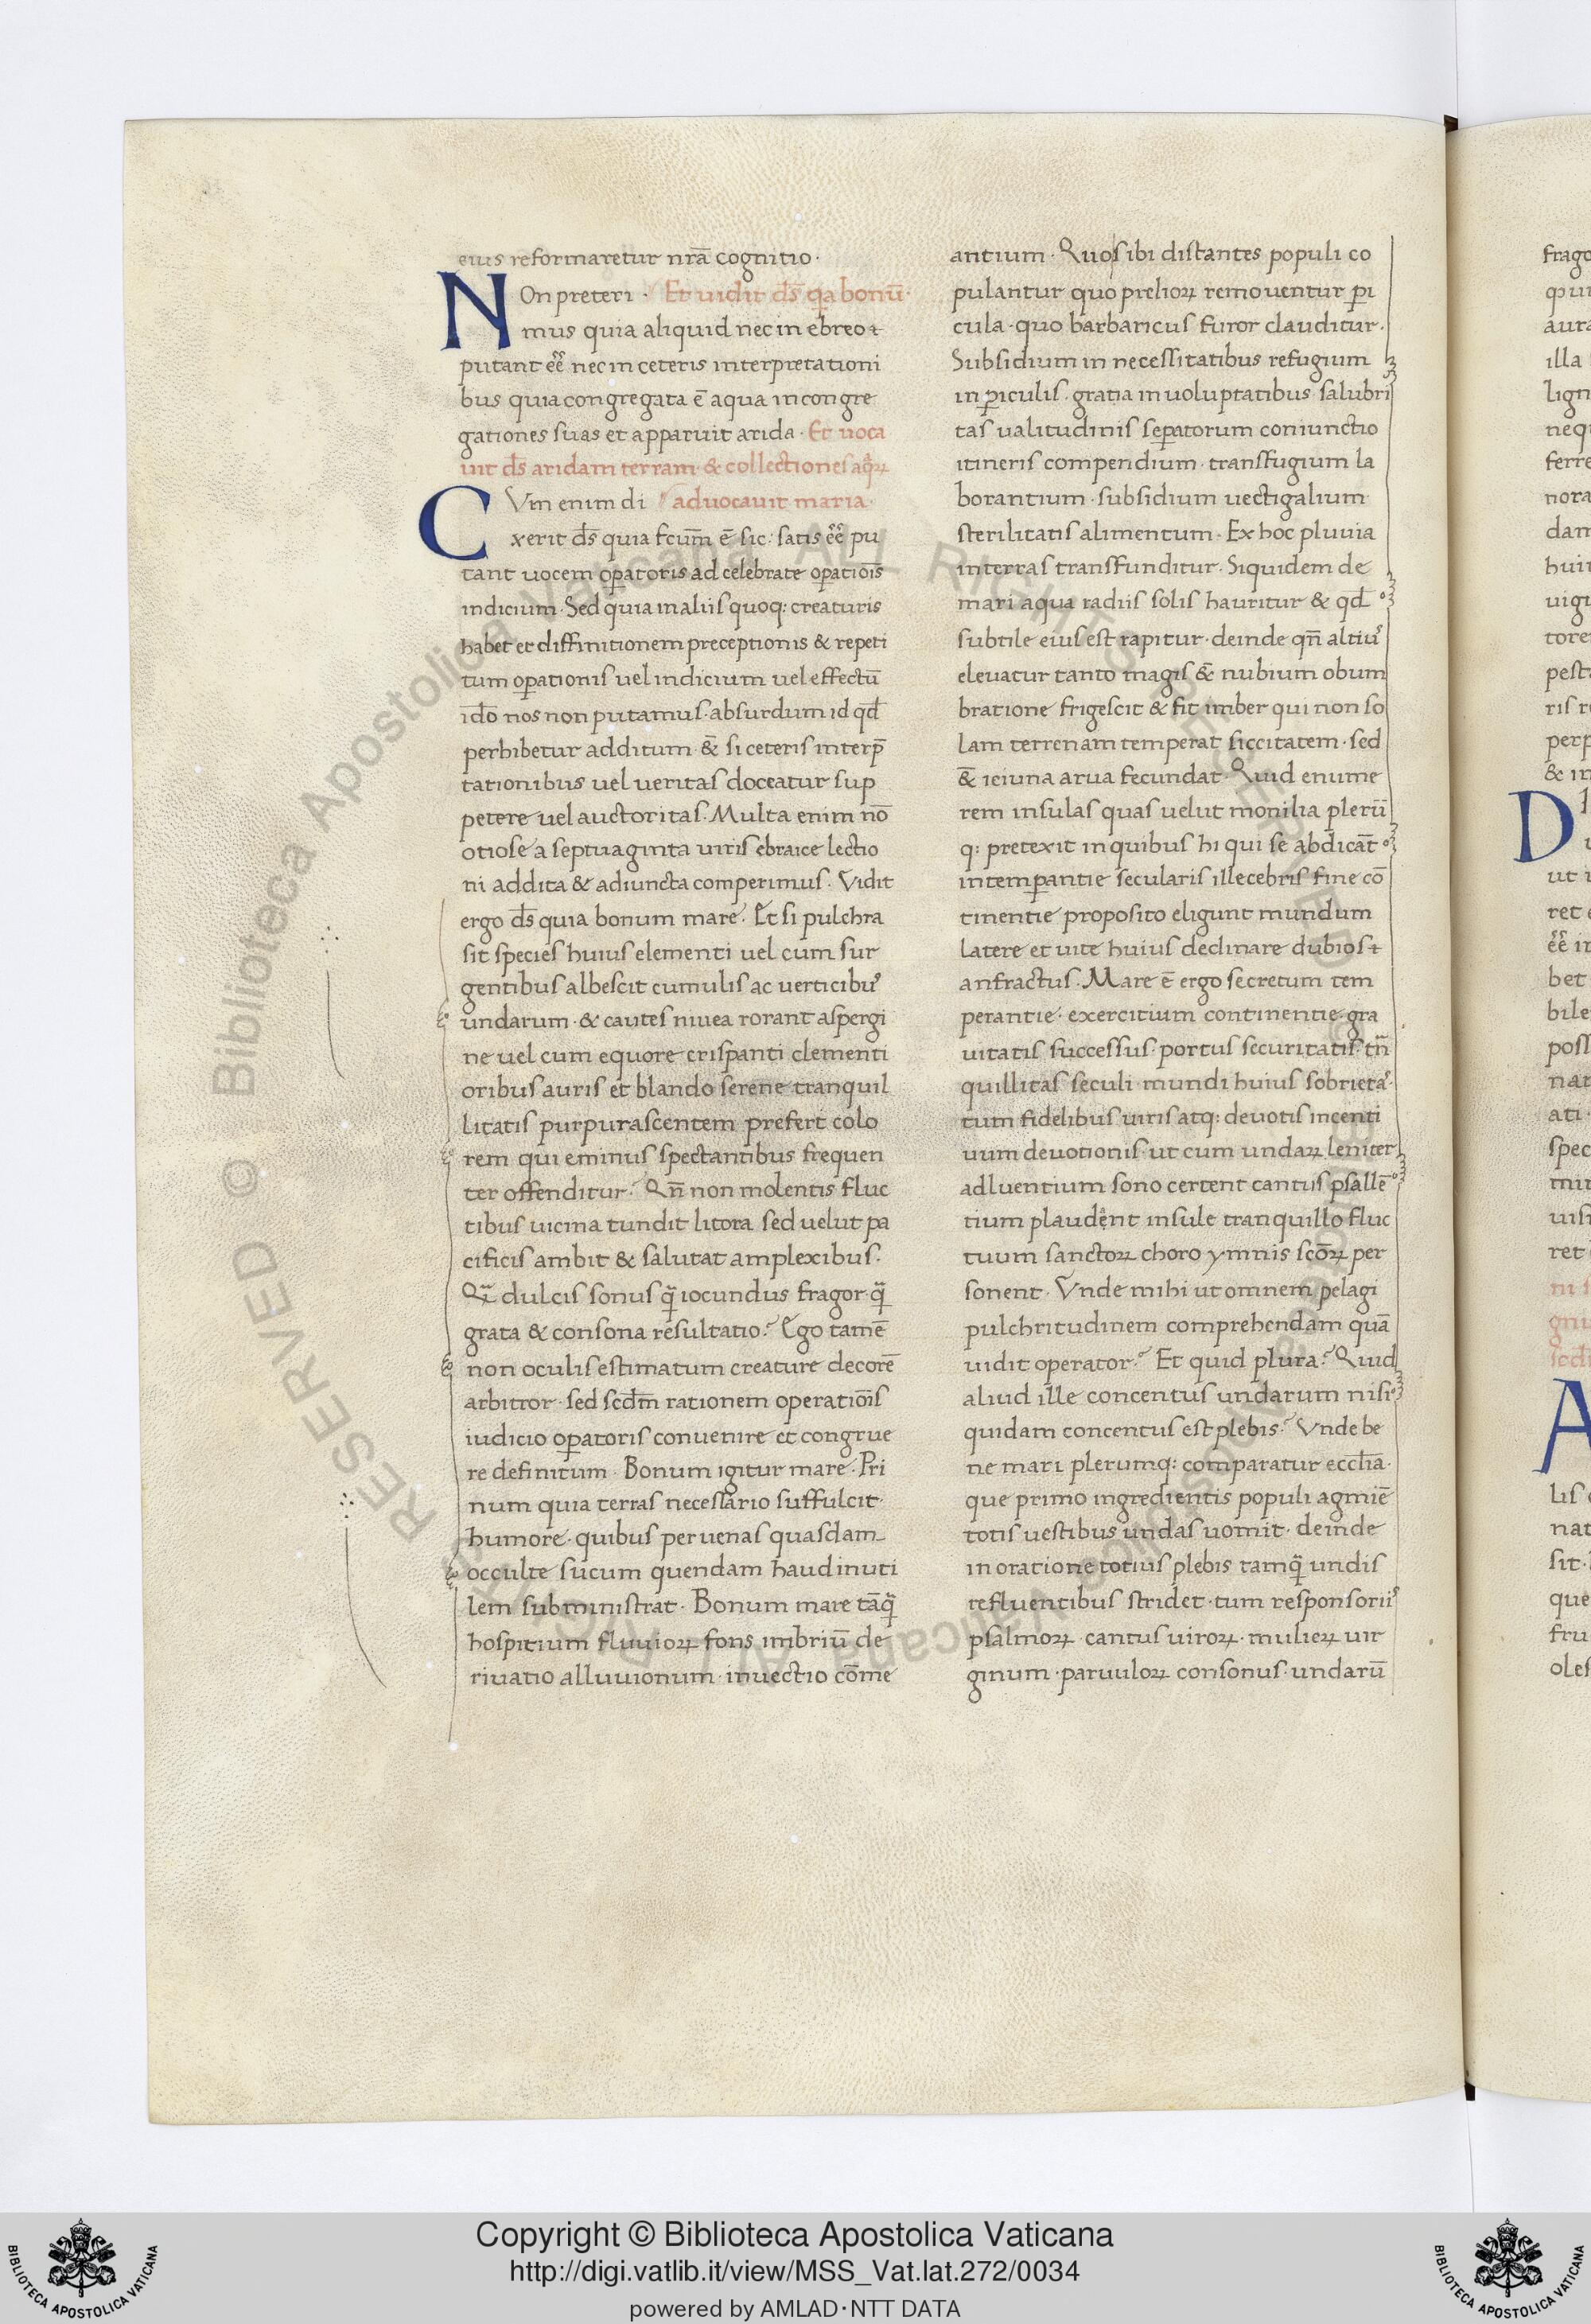 eius reformaretur nr̄a cognitio·
NOn preteri · Et uidit ds̄ qa bonū·
mus quia aliquid nec in ebreo ÷
putant ēē nec in ceteris interpretationi
bus quia congregata ē aqua in congre
gationes suas et apparuit arida · Et uoca
uit ds̄ aridam terram & collectiones aq̄ꝝ
CVm enim di aduocauit maria·
xerit ds̄ quia fcūm ē sic: satis ēē pu
tant uocem oꝑatoris ad celebrate oꝑatiōis
indicium · Sed quia in aliis quoq: creaturis
habet et diffinitionem preceptionis & repeti
tum oꝑationis uel indicium uel effectū
ido̅ nos non putamus · absurdum id qd̄
perhibetur additum · &̄ si ceteris interp̄
tationibus uel ueritas doceatur sup
petere uel auctoritas · Multa enim no̅
otiose a septuaginta uiris ebraice lectio
ni addita & adiuncta comperimus · Vidit
ergo ds̄ quia bonum mare · Et si pulchra
sit species huius elementi uel cum sur
gentibus albescit cumulis ac uerticibuꝰ
undarum · & cautes niuea rorant aspergi
ne uel cum equore crispanti clementi
oribus auris et blando serene tranquil
litatis purpurascentem prefert colo
rem qui eminus spectantibus frequen
ter offenditur · Qn̄ non molentis fluc
tibus uicina tundit litora sed uelut pa
cificis ambit & salutat amplexibus·
Qᷓ dulcis sonus qᷓ iocundus fragor qᷓ
grata & consona resultatio? Ego tamē
non oculis estimatum creature decorē
arbitror · sed scd̄m rationem operatiōis
iudicio oꝑatoris conuenire et congrue
re definitum · Bonum igitur mare · Pri
num quia terras necessario suffulcit
humore · quibus per uenas quasdam
occulte sucum quendam haud inuti
lem subministrat · Bonum mare tāqᷓ
hospitium fluuioꝝ fons imbriū de
riuatio alluuionum · inuectio cōme
antium · Quo sibi distantes populi co
pulantur quo prelioꝝ remouentur ꝑi
cula · quo barbaricus furor clauditur·
Subsidium in necessitatibus refugium
in ꝑiculis · gratia in uoluptatibus · salubri
tas ualitudinis seꝑatorum coniunctio
itineris compendium · transfugium la
borantium · subsidium uectigalium
sterilitatis alimentum · Ex hoc pluuia
in terras transfunditur · Siquidem de
mari aqua radiis solis hauritur & qd̄
subtile eius est rapitur · deinde qn̄ altiuꝰ
eleuatur tanto magis &̄ nubium obum
bratione frigescit & fit imber qui non so
lam terrenam temperat siccitatem · sed
&̄ ieiuna arua fecundat · Quid enume
rem insulas quas uelut monilia plerū
q: pretexit in quibus hi qui se abdicāt
intemꝑantie secularis illecebris fine cō
tinentie proposito eligunt mundum
latere et uite huius declinare dubios ÷
anfractus · Mare ē ergo secretum tem
perantie · exercitium continentie gra
uitatis successus · portus securitatis · tn̄
quillitas seculi · mundi huius sobrietaꝰ·
tum fidelibus uiris atq: deuotis incenti
uum deuotionis · ut cum undaꝝ leniter
adluentium sono certent cantus psallē
tium plaudent insule tranquillo fluc
tuum sanctoꝝ choro ymnis sco̅ꝝ per
sonent · Vnde mihi ut omnem pelagi
pulchritudinem comprehendam quā
uidit operator? Et quid plura? Quid
aliud ille concentus undarum nisi
quidam concentus est plebis? Vnde be
ne mari plerumq: comparatur eccl̄ia·
que primo ingredientis populi agmiē
totis uestibus undas uomit · deinde
in oratione totius plebis tamqᷓ undis
refluentibus stridet · tum responsoriiꝰ
psalmoꝝ · cantus uiroꝝ · mulieꝝ uir
ginum · paruuloꝝ consonus · undarū
Copyright © Biblioteca Apostolica Vaticana
http://digi.vatlib.it/view/MSS_Vat.lat.272/0034
powered by AMLAD·NTT DATA